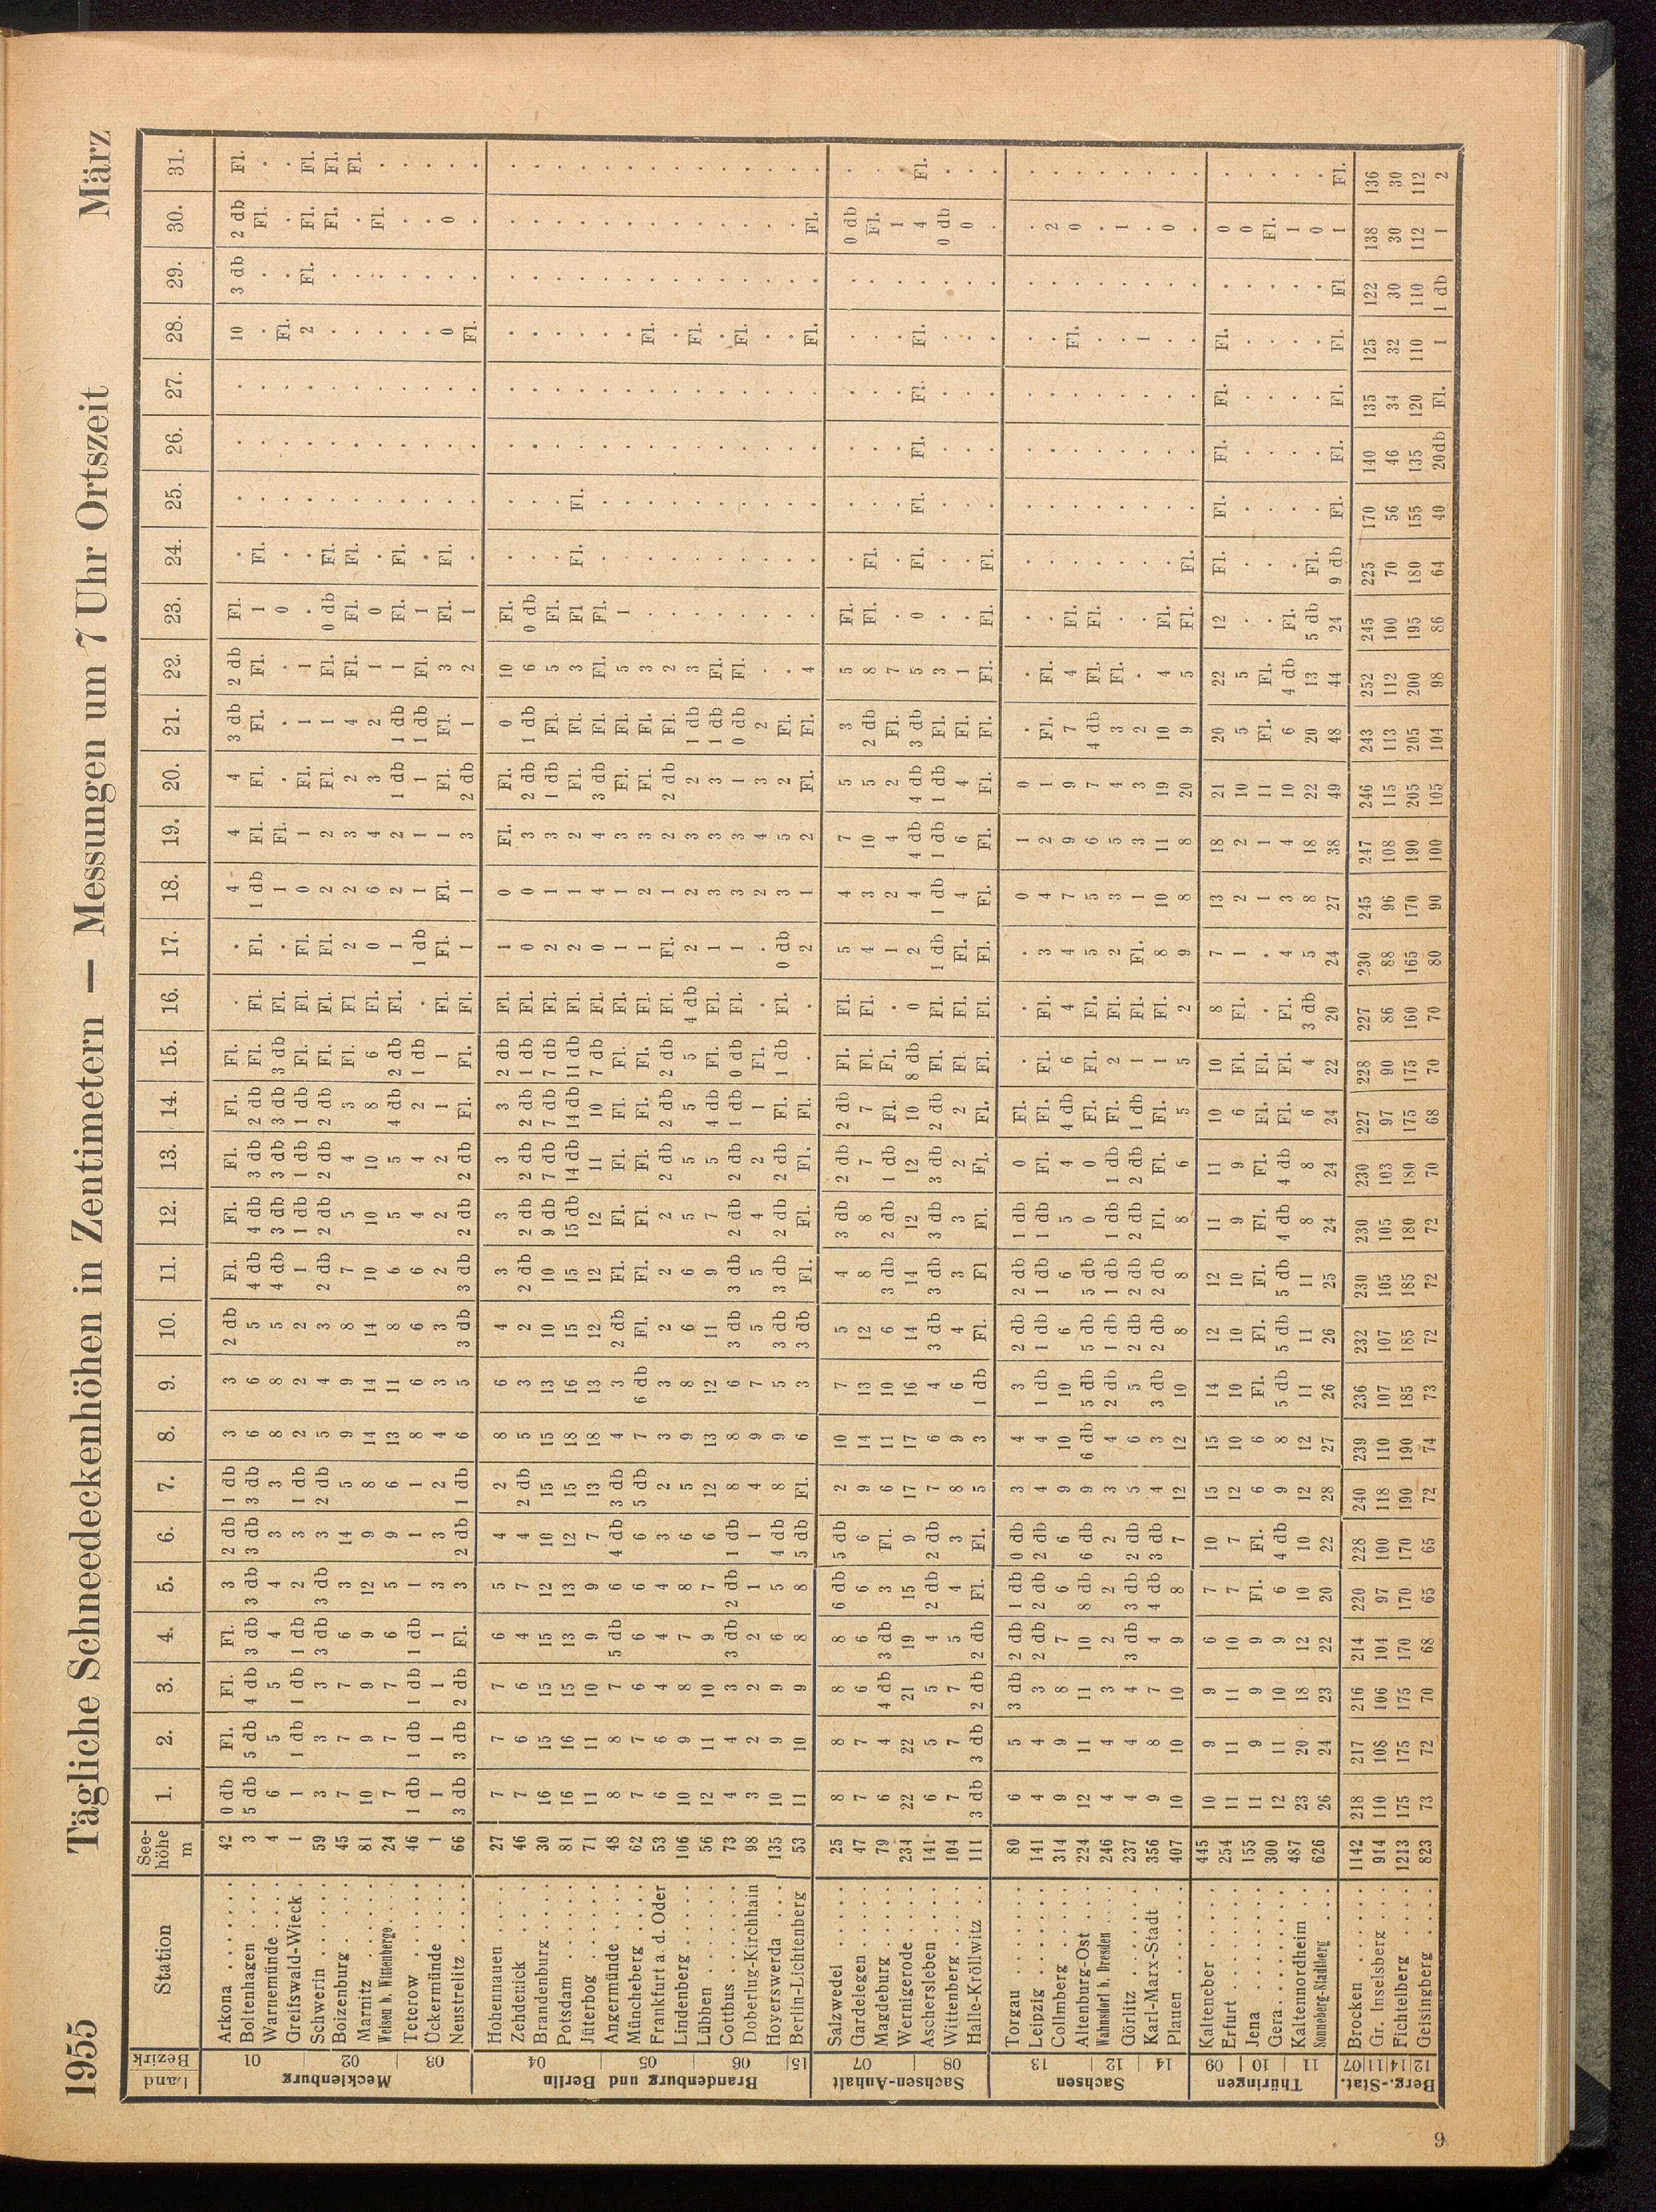 1955 Tägliche Schneedeckenhöhen in Zentimetern — Messungen um 7 Uhr Ortszeit März
Land Bezirk Station See-höhe m 1. 2. 3. 4. 5. 6. 7. 8. 9. 10. 11. 12. 13. 14. 15. 16. 17. 18. 19. 20. 21. 22. 23. 24. 25. 26. 27. 28. 29. 30. 31.
Mecklenburg
01 02 03
Arkona 42 0 db Fl. Fl. Fl. 3 2 db 1 db 3 3 2 db Fl. Fl. Fl. Fl. Fl. . . 4 4 4 3 db 2 db Fl. . . . . 10 3 db 2 db Fl.
Boltenhagen 3 5 db 5 db 4 db 3 db 3 db 3 db 3 db 6 6 5 4 db 4 db 3 db 2 db Fl. Fl. Fl. 1 db Fl. Fl. Fl. Fl. 1 Fl. . . . . . Fl. .
Warnemünde 4 6 5 5 4 4 3 3 8 8 5 4 db 3 db 3 db 3 db 3 db Fl. . 1 Fl. . . . 0 . . . . Fl. . . .
Greifswald-Wieck 1 1 1 db 1 db 1 db 2 3 1 db 2 2 2 1 1 db 1 db 1 db Fl. Fl. Fl. 0 1 Fl. 1 1 . . . . . 2 Fl. Fl. Fl.
Schwerin 59 3 3 3 3 db 3 db 3 2 db 5 4 3 2 db 2 db 2 db 2 db Fl. Fl. Fl. 2 2 Fl. 1 Fl. 0 db Fl. . . . . . Fl. Fl.
Boizenburg 45 7 7 7 6 3 14 5 9 9 8 7 5 4 3 Fl. Fl 2 2 3 2 4 Fl. Fl. Fl. . . . . . . Fl.
Marnitz 81 10 9 9 9 12 9 8 14 14 14 10 10 10 8 6 Fl. 0 6 4 3 2 1 0 . . . . . . Fl. .
Weisen b. Wittenberge 24 7 7 7 6 5 9 6 13 11 8 6 5 5 4 db 2 db Fl. 1 2 2 1 db 1 db 1 Fl. Fl. . . . . . . .
Teterow 46 1 db 1 db 1 db 1 db 1 1 1 8 6 6 6 4 4 2 1 db . 1 db 1 1 1 1 db Fl. 1 . . . . . . . .
Ückermünde 1 1 1 1 1 3 3 2 4 3 3 2 2 2 1 1 Fl. Fl. Fl. 1 Fl. Fl. 3 Fl. Fl. . . . 0 . 0 .
Neustrelitz 66 3 db 3 db 2 db Fl. 3 2 db 1 db 6 5 3 db 3 db 2 db 2 db Fl. Fl. Fl. 1 1 3 2 db 1 2 1 . . . . Fl. . . .
Brandenburg und Berlin
04 05 06 15
Hohennauen 27 7 7 7 6 5 4 2 8 6 4 3 3 3 3 2 db Fl. 1 0 Fl. Fl. 1 0 10 Fl. . . . . . . . .
Zehdenick 46 7 6 6 4 7 4 2 db 5 3 2 2 db 2 db 2 db 2 db 1 db Fl. 0 0 3 2 db 1 db 6 0 db . . . . . . . .
Brandenburg 30 16 15 15 15 12 10 15 15 13 10 10 9 db 7 db 7 db 7 db Fl. 2 1 3 1 db Fl. 5 Fl. . . . . . . . .
Potsdam 81 16 16 15 13 13 12 15 18 16 15 15 15 db 14 db 14 db 11 db Fl. 2 1 2 Fl. Fl. 3 Fl Fl. Fl. . . . . . .
Jüterbog 71 11 11 10 9 9 7 13 18 13 12 12 12 11 10 7 db Fl. 0 4 4 3 db Fl. Fl. Fl. . . . . . . . .
Angermünde 48 8 8 7 5 db 6 4 db 3 db 4 3 2 db Fl. Fl. Fl. Fl. Fl. Fl. 1 1 3 Fl. Fl. 5 1 . . . . . . . .
Müncheberg 62 7 7 6 6 6 6 5 db 7 6 db Fl. Fl. Fl. Fl. Fl. Fl. Fl. 1 2 3 Fl. Fl. 3 . . . . . Fl. . . .
Frankfurt a. d. Oder 53 6 6 4 4 4 3 2 3 3 2 2 2 2 db 2 db 2 db Fl. Fl. 1 2 2 db Fl. 2 . . . . . . . . .
Lindenberg 106 10 9 8 7 8 6 5 9 8 6 6 5 5 5 5 4 db 2 2 3 2 1 db 3 . . . . . Fl. . . .
Lübben 56 12 11 10 9 7 6 12 13 12 11 9 7 5 4 db Fl. Fl. 1 3 3 3 1 db Fl. . . . . . . . . .
Cottbus 73 4 4 3 3 db 2 db 1 db 8 8 6 3 db 3 db 2 db 2 db 1 db 0 db Fl. 1 3 3 1 0 db Fl. . . . . . Fl. . . .
Doberlug-Kirchhain 98 3 2 2 2 1 1 4 9 7 5 5 4 2 1 Fl. . . 2 4 3 2 . . . . . . . . . .
Hoyerswerda 135 10 9 9 6 5 4 db 8 9 5 3 db 3 db 2 db 2 db Fl. 1 db Fl. 0 db 3 5 2 Fl. . . . . . . . . . .
Berlin-Lichtenberg 53 11 10 9 8 8 5 db Fl. 6 3 3 db Fl. Fl. Fl. Fl. . . 2 1 2 Fl. Fl. 4 . . . . . Fl. . Fl. .
Sachsen-Anhalt
07 08
Salzwedel 25 8 8 8 8 6 db 5 db 2 10 7 5 4 3 db 2 db 2 db Fl. Fl. 5 4 7 5 3 5 Fl. . . . . . . 0 db .
Gardelegen 47 7 7 6 6 6 6 9 14 13 12 8 8 7 7 Fl. Fl. 4 3 10 5 2 db 8 Fl. Fl. . . . . . Fl. .
Magdeburg 79 6 4 4 db 3 db 3 Fl. 6 11 10 6 3 db 2 db 1 db Fl. Fl. . 1 2 4 2 Fl. 7 . . . . . . . 1 .
Wernigerode 234 22 22 21 19 15 9 17 17 16 14 14 12 12 10 8 db 0 2 4 4 db 4 db 3 db 5 0 Fl. Fl. Fl. Fl. Fl. . 4 Fl.
Aschersleben 141 6 5 5 4 2 db 2 db 7 6 4 3 db 3 db 3 db 3 db 2 db Fl. Fl. 1 db 1 db 1 db 1 db Fl. 3 . . . . . . . 0 db .
Wittenberg 104 7 7 7 5 4 3 8 9 6 4 3 3 2 2 Fl. Fl. Fl. 4 6 4 Fl. 1 . . . . . . . 0 .
Halle-Kröllwitz 111 3 db 3 db 2 db 2 db Fl. Fl. 5 3 1 db Fl. Fl Fl. Fl. Fl. Fl. Fl. Fl. Fl. Fl. Fl. Fl. Fl. Fl. Fl. . . . . . . .
Sachsen
13 12 14
Torgau 80 6 5 3 db 2 db 1 db 0 db 3 4 3 2 db 2 db 1 db 0 Fl. . . . 0 1 0 . . . . . . . . . . .
Leipzig 141 4 4 3 2 db 2 db 2 db 4 4 1 db 1 db 1 db 1 db Fl. Fl. Fl. Fl. 3 4 2 1 Fl. Fl. . . . . . . . 2 .
Collmberg 314 9 9 8 7 6 6 9 10 10 6 6 5 4 4 db 6 4 4 7 9 9 7 4 Fl. . . . . Fl. . 0 .
Altenburg-Ost 224 12 11 11 10 8 db 6 db 9 6 db 5 db 5 db 5 db 0 0 Fl. Fl. Fl. 5 5 6 7 4 db Fl. Fl. . . . . . . . .
Wahnsdorf b. Dresden 246 4 4 3 2 2 2 3 4 2 db 1 db 1 db 1 db 1 db Fl. 2 Fl. 2 3 5 4 3 Fl. . . . . . . . 1 .
Görlitz 237 4 4 4 3 db 3 db 2 db 5 6 5 2 db 2 db 2 db 2 db 1 db 1 Fl. Fl. 1 3 3 2 . . . . . . 1 . . .
Karl-Marx-Stadt 356 9 8 7 4 4 db 3 db 4 3 3 db 2 db 2 db Fl. Fl. Fl. 1 Fl. 8 10 11 19 10 4 Fl. . . . . . . 0 .
Plauen 407 10 10 10 9 8 7 12 12 10 8 8 8 6 5 5 2 9 8 8 20 9 5 Fl. Fl. . . . . . . .
Thüringen
09 10 11
Kalteneber 445 10 9 9 6 7 10 15 15 14 12 12 11 11 10 10 8 7 13 18 21 20 22 12 Fl. Fl. Fl. Fl. Fl. . 0 .
Erfurt 254 11 11 11 10 7 7 12 10 10 10 10 9 9 6 Fl. Fl. 1 2 2 10 5 5 . . . . . . . 0 .
Jena 155 11 9 9 9 Fl. Fl. 6 6 Fl. Fl. Fl. Fl. Fl. Fl. Fl. . . 1 1 11 Fl. Fl. . . . . . . . Fl. .
Gera 300 12 11 10 9 6 4 db 9 8 5 db 5 db 5 db 4 db 4 db Fl. Fl. Fl. 4 3 4 10 6 4 db Fl. . . . . . . 1 .
Kaltennordheim 487 23 20 18 12 10 10 12 12 11 11 11 8 8 6 4 3 db 5 8 18 22 20 13 5 db Fl. . . . . . 0 .
Sonneberg-Stadtberg 626 26 24 23 22 20 22 28 27 26 26 25 24 24 24 22 20 24 27 38 49 48 44 24 9 db Fl. Fl. Fl. Fl. Fl 1 Fl.
Berg.-Stat.
07 11 14 12
Brocken 1142 218 217 216 214 220 228 240 239 236 232 230 230 230 227 228 227 230 245 247 246 243 252 245 225 170 140 135 125 122 138 136
Gr. Inselsberg 914 110 108 106 104 97 100 118 110 107 107 105 105 103 97 90 86 88 96 108 115 113 112 100 70 56 46 34 32 30 30 30
Fichtelberg 1213 175 175 175 170 170 170 190 190 185 185 185 180 180 175 175 160 165 170 190 205 205 200 195 180 155 135 120 110 110 112 112
Geisingberg 823 73 72 70 68 65 65 72 74 73 72 72 72 70 68 70 70 80 90 100 105 104 98 86 64 40 20 db Fl. 1 1 db 1 2
6